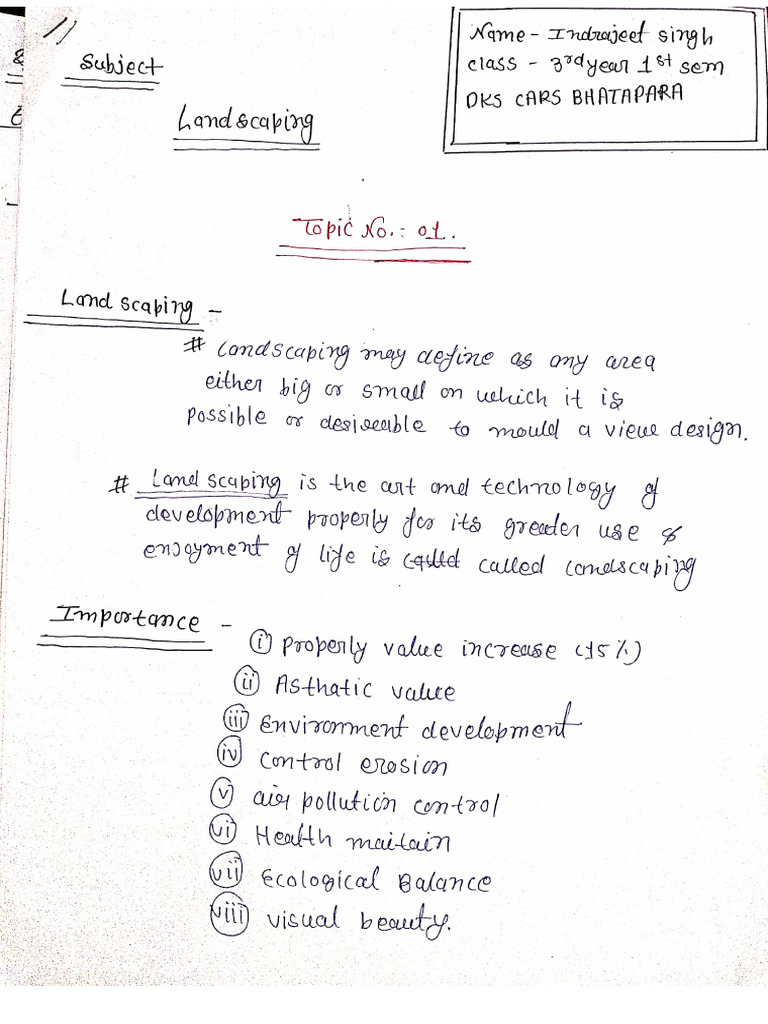 Subject
Landscaping
Name - Indrajeet singh
class - 3rd year 1st sem
DKS CARS BHATAPARA
Topic No.: 01.
Landscaping -
# Landscaping may define as any area
either big or small on which it is
possible or desireable to mould a view design.
# Landscaping is the art and technology of
development properly for its greater use &
enjoyment of life is called called landscaping
Importance -
(i) Properly value increase (15%)
(ii) Asthatic value
(iii) Environment development
(iv) Control erosion
(v) air pollution control
(vi) Health maitain
(vii) Ecological Balance
(viii) visual beauty.